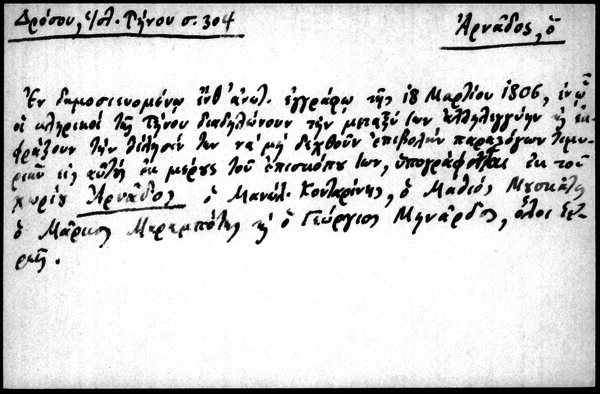 Δρόσου, Ἱστ. Τήνου σ. 304
Ἀρνᾶδος, ὁ
Ἐν δημοσιευομένῳ ἔνθ' ἀνωτ. ἐγγράφῳ τῆς 18 Μαρτίου 1806, ἐν ᾧ
οἱ κληρικοὶ τῆς Τήνου διαδηλώνουν τὴν μεταξύ των ἀλληλεγγύην κ' ἐκ-
φράζουν τὴν θέλησίν των νὰ μὴ δεχθοῦν ἐπιβολὴν παραλόγων τιμω-
ριῶν εἰς αὐτὴ ἐκ μέρους τοῦ ἐπισκόπου των, ὑπογράφονται ἐκ τοῦ
χωρίου Ἀρνᾶδος ὁ Μανώλ. Κονταρίνης, ὁ Μαθιὸς
ὁ Μᾶρκος κ' ὁ Γεώργιος Μηνᾶρδος, ὅλοι ἱε-
ρεῖς.